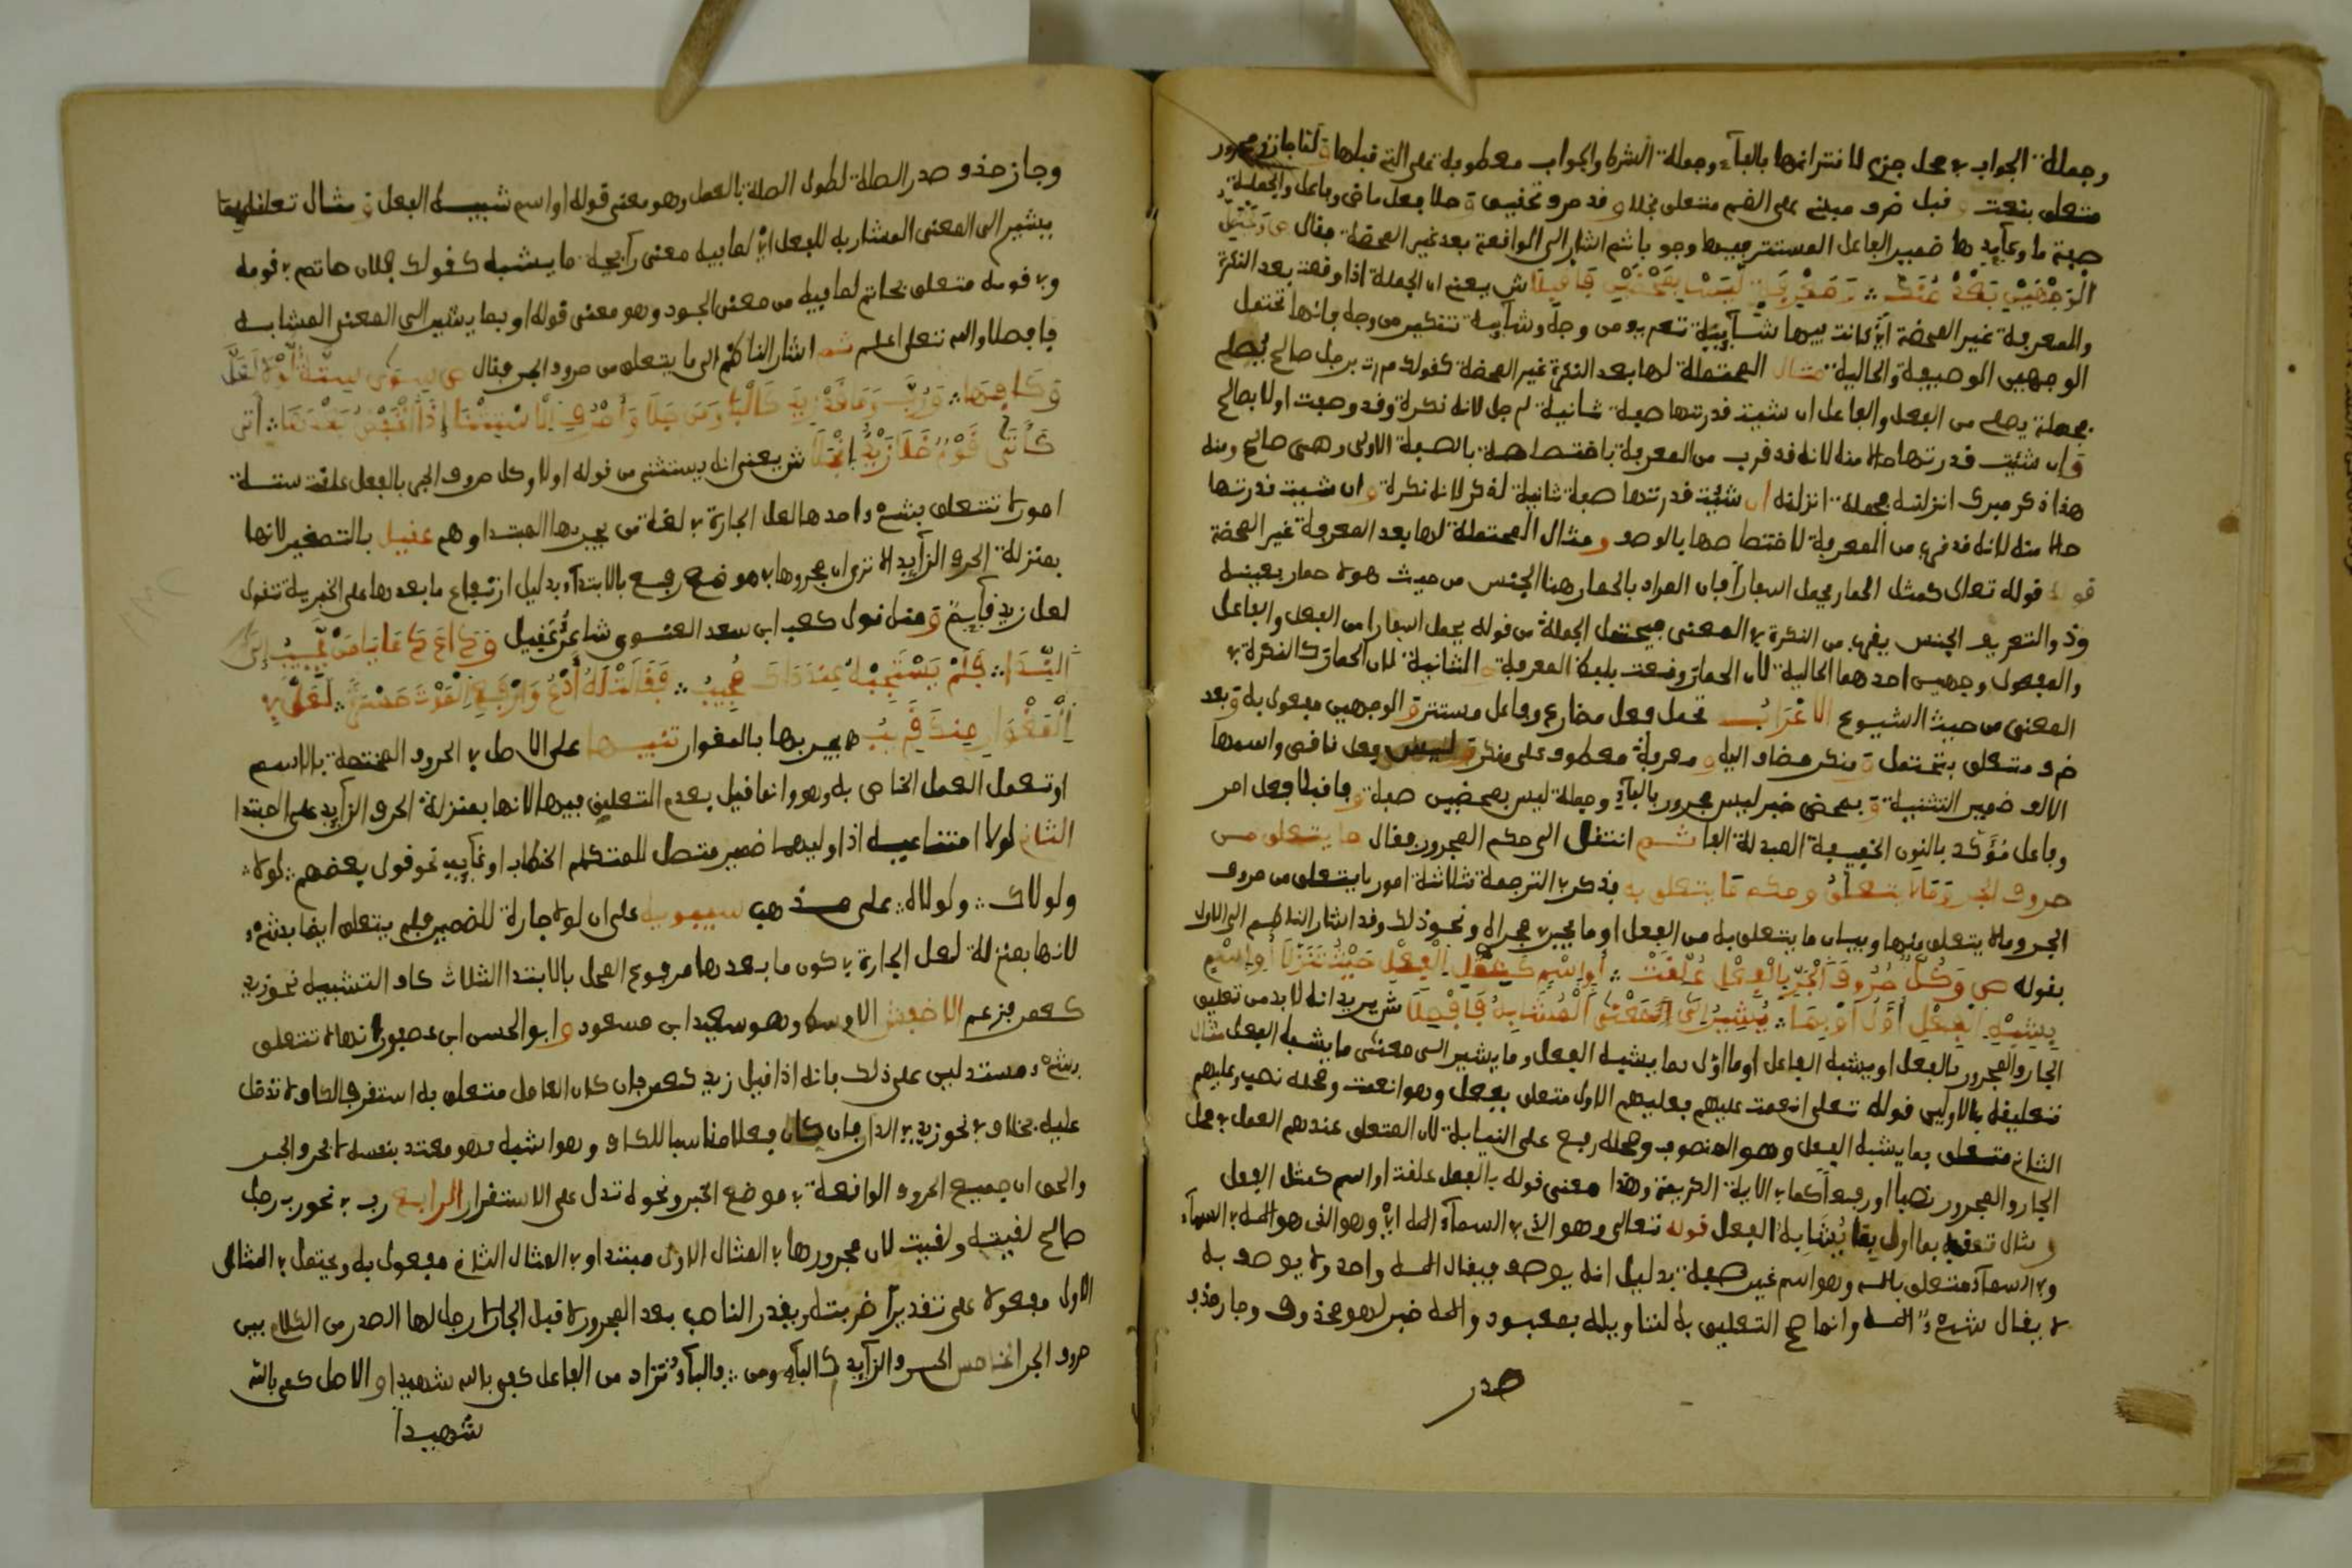 وجملة الجواب في محل جزم لاقترانها بالفاء وجملة الشرط والجواب معطوفة على التي قبلها و لنا جار ومجرور
متعلق بنعت و قبل ظرف مبني على الضم متعلق بخلا و قد حرف تحقيق و خلا فعل ماض وفاعل والجملة
صفة ما وعايدها ضمير الفاعل المستتر فيها وجوبا ثم اشار الى الواقعة بعد غير المحضة فقال ص وتحتمل
الوجهين بعد منكر وغير معرفة ليس بمحضين فاقبلا ش يعني ان الجملة اذا وقعت بعد النكرة
والمعرفة غير المحضة اي كانت فيها شايبة تعريف من وجه وشايبة تنكير من وجه فانها تحتمل
الوجهين الوصفية والحالية مثال المحتملة لها بعد النكرة غير المحضة كقولك مررت برجل صالح يصلي
فجملة يصلي من الفعل والفاعل ان شيت قدرتها صفة ثانية لرجل لانه نكرة وقد وصفت اولا بصالح
وان شيت قدرتها حالا منه لانه قد قرب من المعرفة باختصاصه بالصفة الاولى وهي صالح ومنه
هذا ذكر مبرك انزلنه فجملة انزلنه ان شئت قدرتها صفة ثانية لذكر لانه نكرة و ان شيت قدرتها
حالا منه لانه قد قرب من المعرفة لاختصاصها بالوصف و مثال المحتملة لها بعد المعرفة غير المحضة
قوله تعالى كمثل الحمار يحمل اسفارا فان المراد بالحمار هنا الجنس من حيث هو لا حمار بعينه
وذو التعريف الجنس يقرب من النكرة في المعنى فيحتمل الجملة من قوله يحمل اسفارا من الفعل والفاعل
والمفعول وجهين احدهما الحالية لان الحمار وقعت بلفظ المعرفة و الثانية لان الحمار كالنكرة في
المعنى من حيث الشيوع الاعراب تحتمل فعل مضارع وفاعل مستتر و الوجهين مفعول به و بعد
ظرف متعلق بتحتمل و منكر مضاف اليه و معرفة معطوف على منكر و ليس فعل ناقص واسمها
الالف ضمير التثنية و بمحض خبر ليس مجرور بالباء وجملة ليس بمحضين صفة و فاقبلا فعل امر
وفاعل مؤكد بالنون الخفيفة المبدلة الفا ثم انتقل الى حكم المجرور فقال ما يتعلق من
حروف الجر وما لا يتعلق وحكم ما يتعلق به فذكر في الترجمة ثلاثة امور ما يتعلق من حروف
الجر وما لا يتعلق منها وبيان ما يتعلق به من الفعل او ما يجري مجراه ونحو ذلك وقد اشار الناظم الى الاول
بقوله ص وكل حروف الجر بالفعل علقت او اسم كمثل الفعل حيث تنزلا او اسم
بشبه الفعل اول او بما يشير الى المعنى المشابه فافصلا ش يريد انه لا بد من تعليق
الجار والمجرور بالفعل او بشبه الفاعل او ما اول بما يشبه الفعل وما يشير الى معنى ما يشبه الفعل مثال
تعليقه بالاولين قوله تعلى انعمت عليهم فعليهم الاول متعلق بفعل وهو انعمت ومحله نصب وعليهم
الثاني متعلق بما يشبه الفعل وهو المغضوب ومحله رفع على النيابة لان المتعلق عندهم العمل في محل
الجار والمجرور نصبا او رفعا كما في الاية الكريمة وهذا معنى قوله بالفعل علقت او اسم كمثل الفعل
و مثال تعلقه بما اول بما يشابه الفعل قوله تعالى وهو الذي في السماء اله اي وهو الذي هو اله في السماء
وفي السماء متعلق باله وهو اسم غير صفة بدليل انه يوصف فيقال اله واحد ولا يوصف به
لا يقال شيء اله وانما صح التعليق به لتاويله بمعبود واله خبر لهو محذوف وجاز حذف
صدر
وجاز حذف صدر الصلة لطول الصلة بالعمل وهو معنى قوله او اسم شبيه الفعل و مثال تعلقه بما
يشير الى المعنى المشار به للفعل اي لما فيه معنى رايحة ما يشبه كقولك فلان حاتم في قومه
وفي قومه متعلق بحاتم لما فيه من معنى الجود وهو معنى قوله او بما يشير الى المعنى المشابه
فافصلا والله تعلى اعلم ثم اشار الناظم الى ما يتعلق من حروف الجر فقال ص سوى ستة لولا لعل
وكاف ورب وما قد زيد كالباء ومن خلا واحرف الاستثنا اذا انخفض بعدها اتى
كأتى قوم خلا زيد انجلا ش يعني انه يستثنى من قوله اولا وكل حروف الجر بالفعل علقت ستة
امور لا تتعلق بشيء احدها لعل الجارة في لغة من يجر بها المبتدا وهم عقيل بالتصغير لانها
بمنزلة الحرف الزايد الا ترى ان مجرورها في موضع رفع بالابتداء بدليل ارتفاع ما بعدها على الخبرية تقول
لعل زيد قايم و منه قول كعب ابن سعد الغنوي شاعر عقيل وداع دعا يا من يجيب الى
الندا فلم يستجبه عند ذاك مجيب فقلت له ادع وارفع الصوت حسرة لعل ابي
المغوار منك قريب فجر بها بالمغوار تنبيها على الاصل في الحروف المختصة بالاسم
او تعمل العمل الخاص به وهو وانما قيل بعدم التعليق فيها لانها بمنزلة الحرف الزايد على المبتدا
الثاني لولا امتناعية اذا وليها ضمير متصل للمتكلم الخطاب او غايب نحو قول بعضهم لولاي
ولولاك ولولاه على مذهب سيبويه على ان لولا جارة للضمير فلم يتعلق ايضا بشيء
لانها بمنزلة لعل الجارة في كون ما بعدها مرفوع المحل بالابتدا الثالث كاف التشبيه نحو زيد
كعمر فزعم الاخفش الاوسط وهو سعيد ابن مسعود و ابو الحسن ابن عصفور انها لا تتعلق
بشيء مستدلين على ذلك بانه اذا قيل زيد كعمر فان كان العامل متعلق به استقر فالكاف لا تدل
عليه بخلاف في نحو زيد في الدار فان كان فعلا مناسبا للكاف وهو اشبه فهو معتد بنفسه لا بحرف الجر
والحق ان جميع الحروف الواقعة في موضع الخبر ونحوه تدل على الاستقرار الرابع رب في نحو رب رجل
صالح لقيته ولقيت لان مجرورها في المثال الاول مبتدا وفي المثال الثاني مفعول به ويحتمل في المثال
الاول مفعولا على تقدير ضربته ويقدر الناصب بعد المجرور لا قبل الجار لان رب لها الصدر من الكلام بين
حروف الجر الخامس الحرف الزايد كالباء ومن فالباء تزاد من الفاعل كفى بالله شهيدا و الاصل كفى بالله
شهيدا